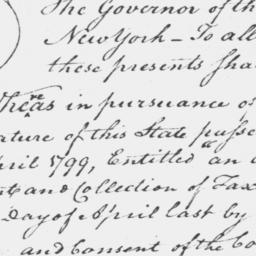 The Governor of th
New York - To all
these presents Sha
Whereas in pursuance o
ature of this State passe
pril 1799, Entitled "an a
and Collection of Tax
Day of April last by
and Consent of the Co